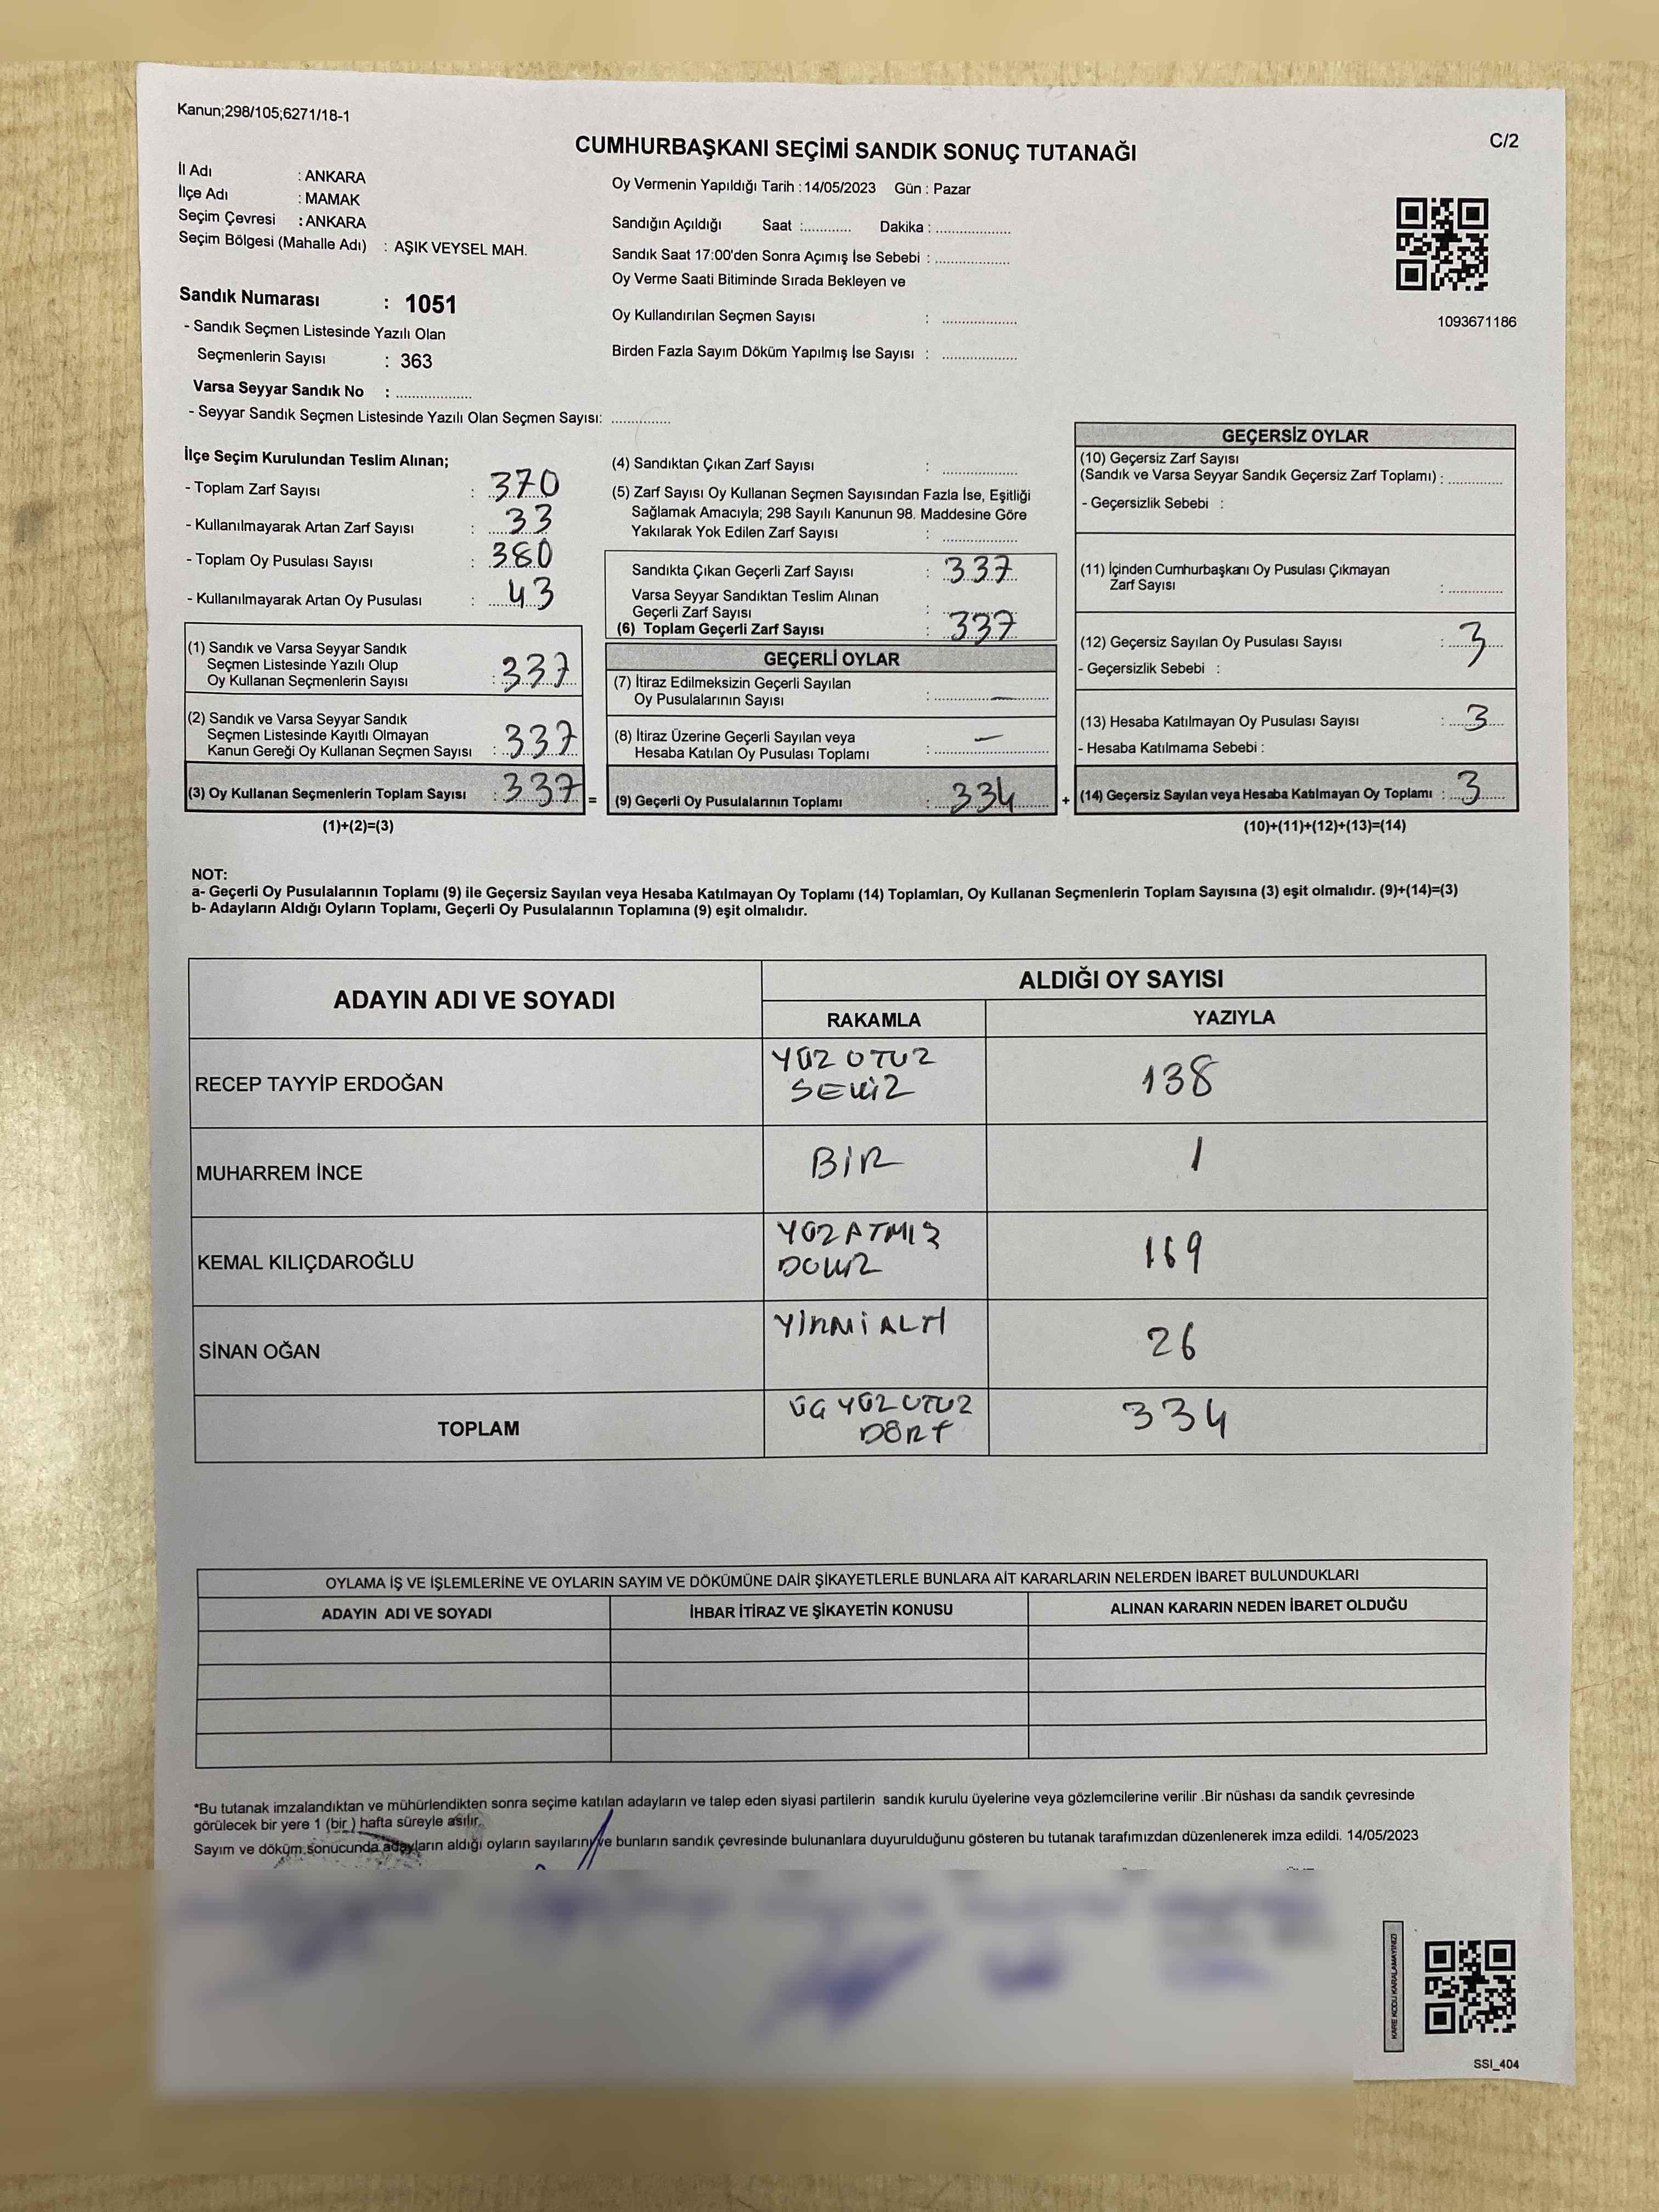 Kanun;298/105;6271/18-1
C/2
CUMHURBAŞKANI SEÇİMİ SANDIK SONUÇ TUTANAĞI
İl Adı : ANKARA
İlçe Adı : MAMAK
Seçim Çevresi : ANKARA
Seçim Bölgesi (Mahalle Adı) : AŞIK VEYSEL MAH.
Sandık Numarası : 1051
- Sandık Seçmen Listesinde Yazılı Olan
Seçmenlerin Sayısı : 363
Varsa Seyyar Sandık No : ..................
- Seyyar Sandık Seçmen Listesinde Yazılı Olan Seçmen Sayısı: ..............
Oy Vermenin Yapıldığı Tarih : 14/05/2023 Gün : Pazar
Sandığın Açıldığı Saat :............ Dakika : ..................
Sandık Saat 17:00'den Sonra Açımış İse Sebebi : ..................
Oy Verme Saati Bitiminde Sırada Bekleyen ve
Oy Kullandırılan Seçmen Sayısı : ..................
Birden Fazla Sayım Döküm Yapılmış İse Sayısı : ..................
1093671186
İlçe Seçim Kurulundan Teslim Alınan;
- Toplam Zarf Sayısı : 370
- Kullanılmayarak Artan Zarf Sayısı : 33
- Toplam Oy Pusulası Sayısı : 380
- Kullanılmayarak Artan Oy Pusulası : 43
(1) Sandık ve Varsa Seyyar Sandık
Seçmen Listesinde Yazılı Olup
Oy Kullanan Seçmenlerin Sayısı : 337
(2) Sandık ve Varsa Seyyar Sandık
Seçmen Listesinde Kayıtlı Olmayan
Kanun Gereği Oy Kullanan Seçmen Sayısı : 337
(3) Oy Kullanan Seçmenlerin Toplam Sayısı : 337 =
(1)+(2)=(3)
(4) Sandıktan Çıkan Zarf Sayısı : ..................
(5) Zarf Sayısı Oy Kullanan Seçmen Sayısından Fazla İse, Eşitliği
Sağlamak Amacıyla; 298 Sayılı Kanunun 98. Maddesine Göre
Yakılarak Yok Edilen Zarf Sayısı : ..................
Sandıkta Çıkan Geçerli Zarf Sayısı : 337
Varsa Seyyar Sandıktan Teslim Alınan
Geçerli Zarf Sayısı : ..................
(6) Toplam Geçerli Zarf Sayısı : 337
GEÇERLİ OYLAR
(7) İtiraz Edilmeksizin Geçerli Sayılan
Oy Pusulalarının Sayısı : —
(8) İtiraz Üzerine Geçerli Sayılan veya
Hesaba Katılan Oy Pusulası Toplamı : —
(9) Geçerli Oy Pusulalarının Toplamı : 334 +
GEÇERSİZ OYLAR
(10) Geçersiz Zarf Sayısı
(Sandık ve Varsa Seyyar Sandık Geçersiz Zarf Toplamı) : .............
- Geçersizlik Sebebi :
(11) İçinden Cumhurbaşkanı Oy Pusulası Çıkmayan
Zarf Sayısı : .............
(12) Geçersiz Sayılan Oy Pusulası Sayısı : 3
- Geçersizlik Sebebi :
(13) Hesaba Katılmayan Oy Pusulası Sayısı : 3
- Hesaba Katılmama Sebebi :
(14) Geçersiz Sayılan veya Hesaba Katılmayan Oy Toplamı : 3
(10)+(11)+(12)+(13)=(14)
NOT:
a- Geçerli Oy Pusulalarının Toplamı (9) ile Geçersiz Sayılan veya Hesaba Katılmayan Oy Toplamı (14) Toplamları, Oy Kullanan Seçmenlerin Toplam Sayısına (3) eşit olmalıdır. (9)+(14)=(3)
b- Adayların Aldığı Oyların Toplamı, Geçerli Oy Pusulalarının Toplamına (9) eşit olmalıdır.
ADAYIN ADI VE SOYADI
ALDIĞI OY SAYISI
RAKAMLA YAZIYLA
RECEP TAYYİP ERDOĞAN YÜZ OTUZ
SEKİZ 138
MUHARREM İNCE BİR 1
KEMAL KILIÇDAROĞLU YÜZ ATMIŞ
DOKUZ 169
SİNAN OĞAN YİRMİ ALTI 26
TOPLAM ÜÇ YÜZ OTUZ
DÖRT 334
OYLAMA İŞ VE İŞLEMLERİNE VE OYLARIN SAYIM VE DÖKÜMÜNE DAİR ŞİKAYETLERLE BUNLARA AİT KARARLARIN NELERDEN İBARET BULUNDUKLARI
ADAYIN ADI VE SOYADI İHBAR İTİRAZ VE ŞİKAYETİN KONUSU ALINAN KARARIN NEDEN İBARET OLDUĞU
*Bu tutanak imzalandıktan ve mühürlendikten sonra seçime katılan adayların ve talep eden siyasi partilerin sandık kurulu üyelerine veya gözlemcilerine verilir .Bir nüshası da sandık çevresinde
görülecek bir yere 1 (bir ) hafta süreyle asılır.
Sayım ve döküm sonucunda adayların aldığı oyların sayılarını ve bunların sandık çevresinde bulunanlara duyurulduğunu gösteren bu tutanak tarafımızdan düzenlenerek imza edildi. 14/05/2023
KARE KODU KARALAMAYINIZ!
SSI_404